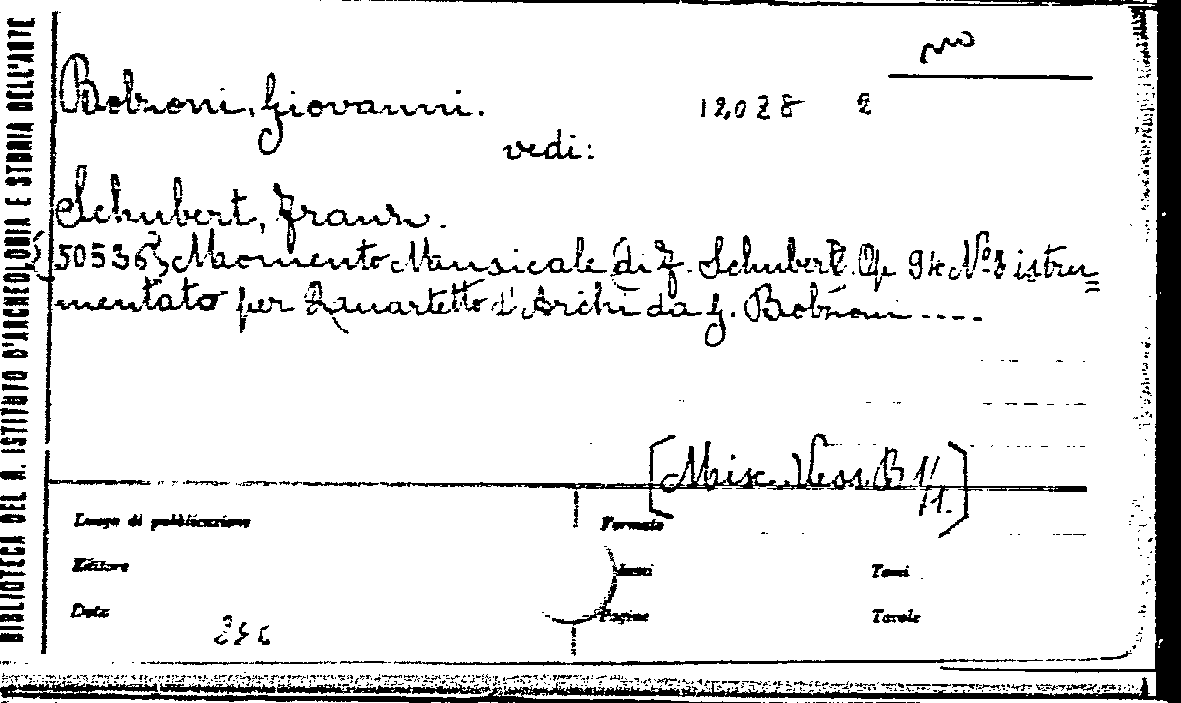 BIBLIOTECA DEL R. ISTITUTO D'ARCHEOLOGIA E STORIA DELL'ARTE
Bolzoni, Giovanni.
12028
vedi:
Schubert, Franz.
50536) Momento Musicale di F. Schubert. Op 94 No 3 istru=
mentato per Quartetto d'Archi da G. Bolzoni ----
[Misc. Vess. B 1/1.]
Luogo di pubblicazione
Formato
Editore
Anni
Tomi
Data
Pagine
Tavole